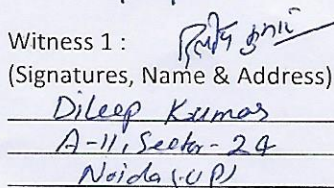 Witness 1 :
(Signatures, Name & Address)
Dileep Kumar
A-11, Sector-24
Noida (UP)